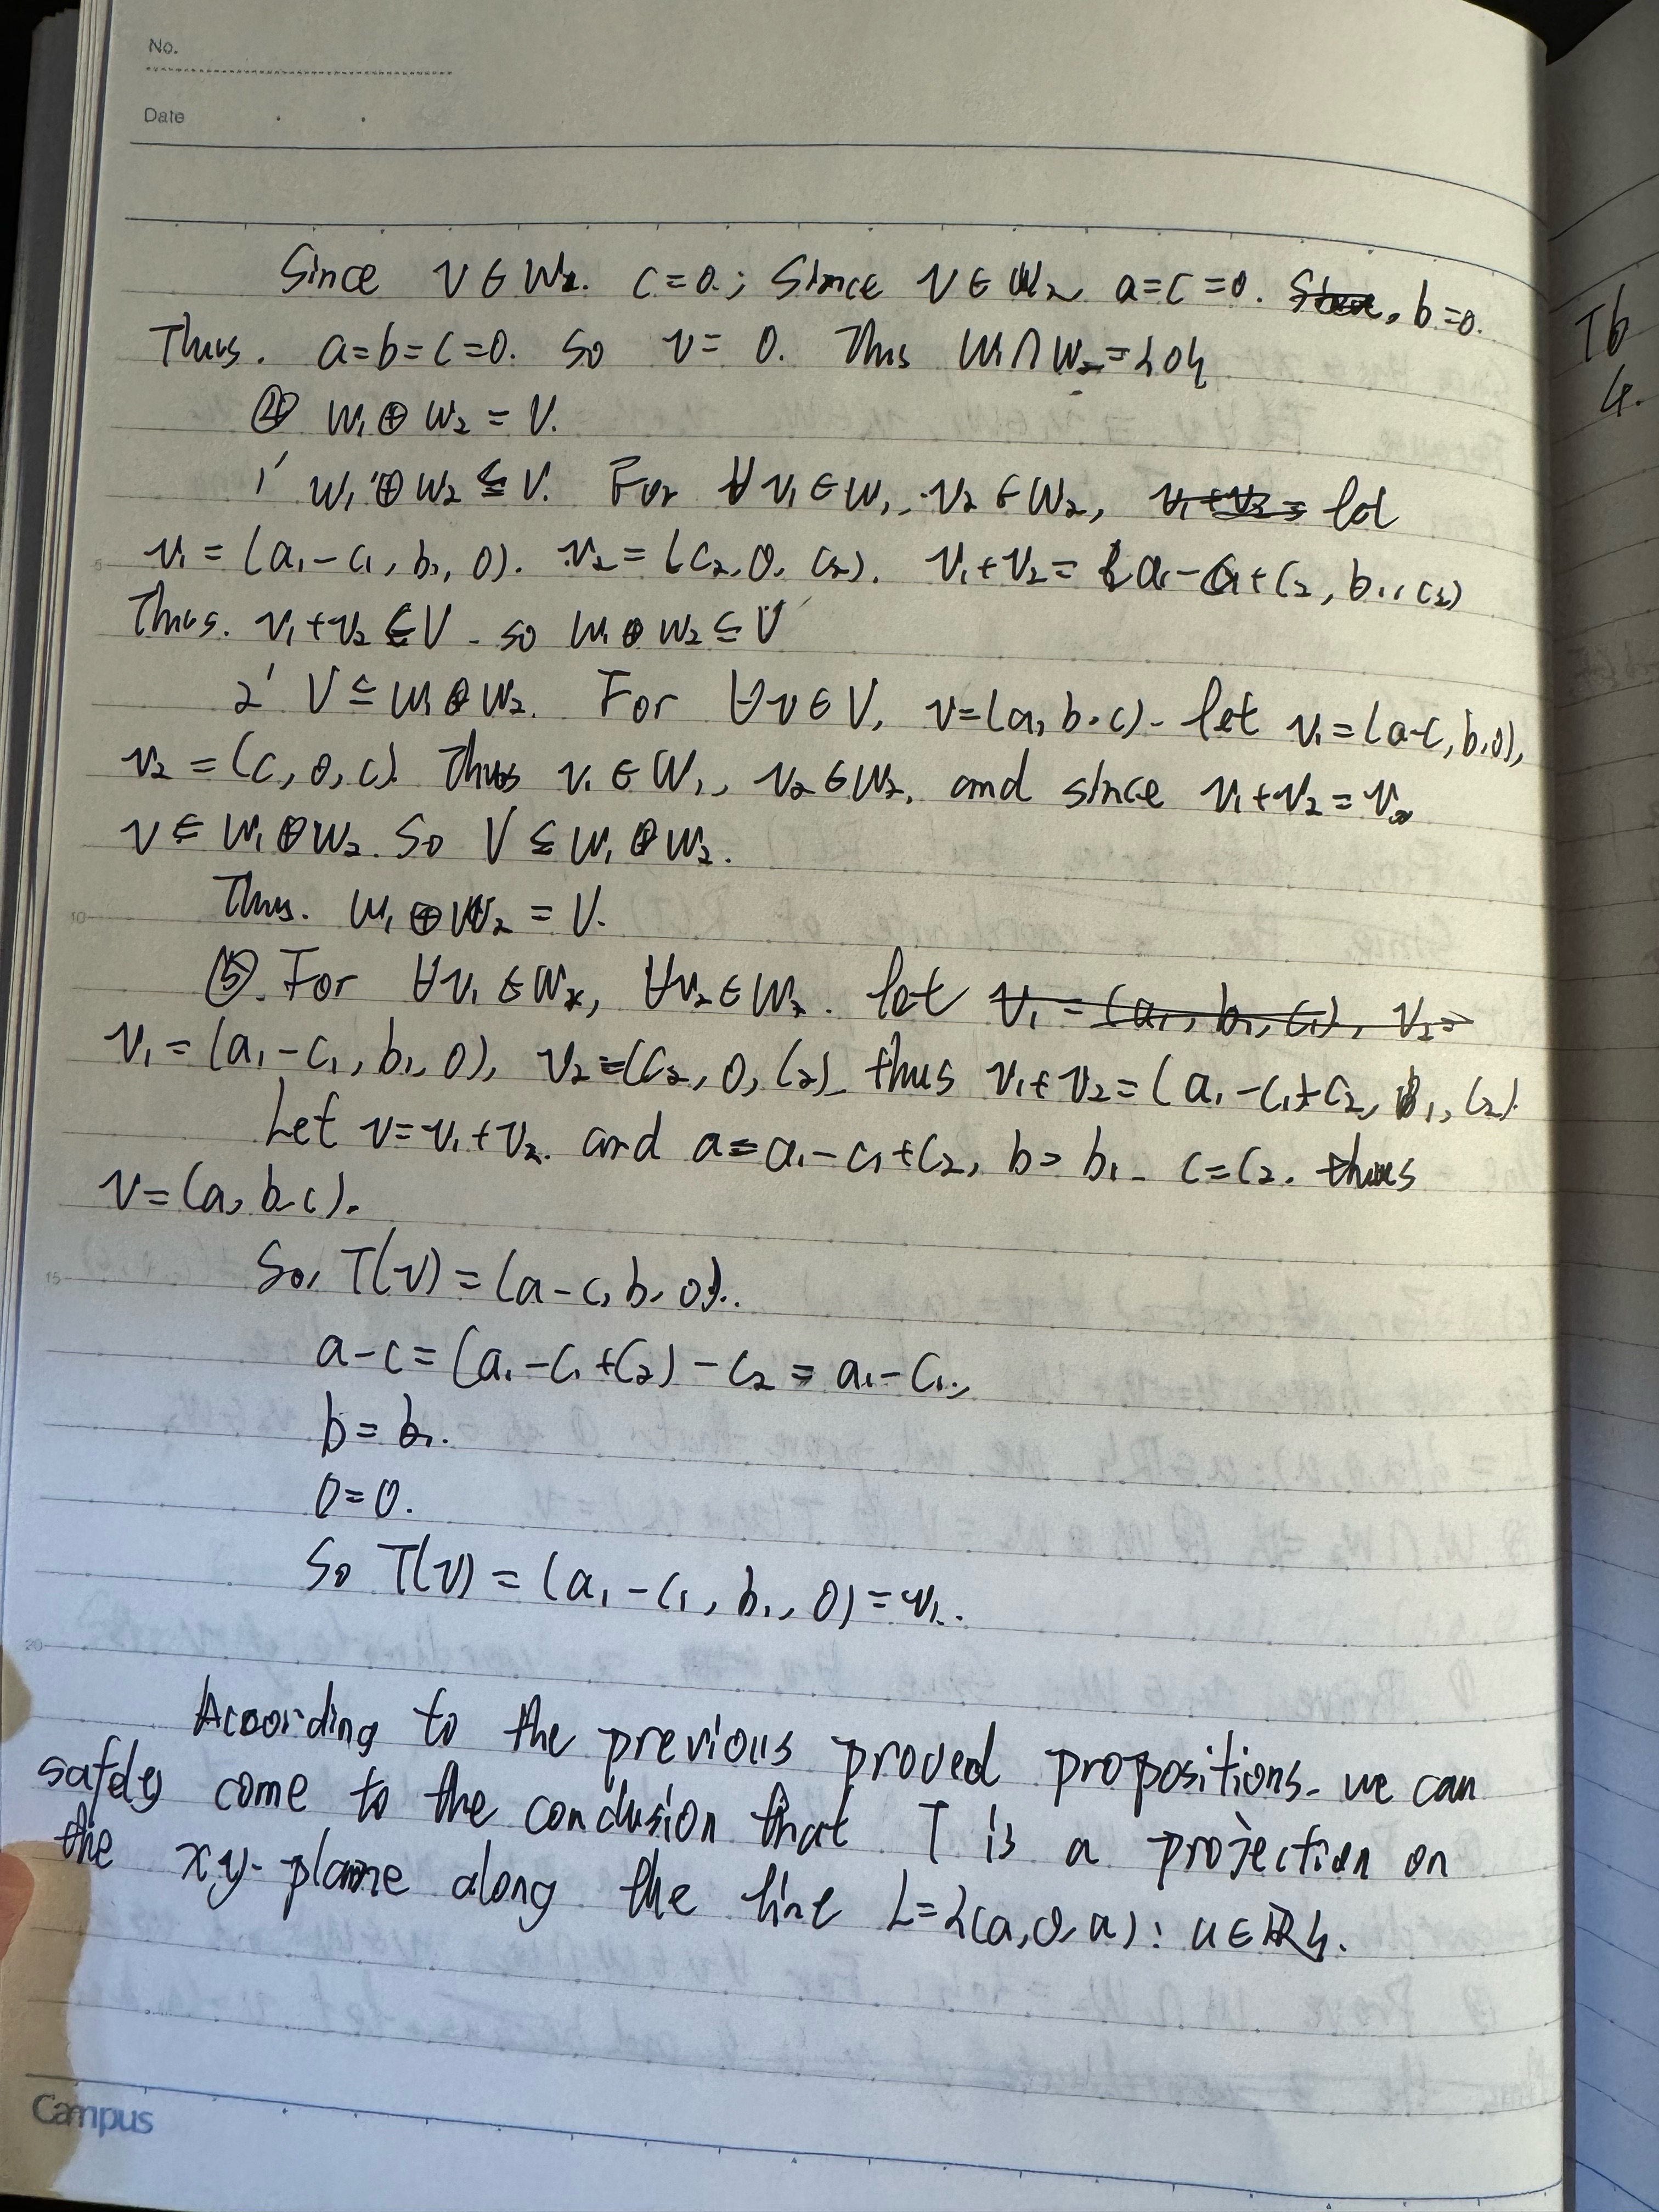 No.
Date
Since v ∈ W₁. c=0.; Since v ∈ W₂ a=c=0. , b=0.
Thus. a=b=c=0. So v= 0. Thus W₁∩W₂={0}
④ W₁⊕W₂ = V.
1' W₁⊕W₂ ⊆ V. For ∀v₁∈W₁, v₂∈W₂, let
v₁ = (a₁-c₁, b₁, 0). v₂ = (c₂, 0, c₂). v₁+v₂ = (a₁-c₁+c₂, b₁, c₂)
Thus. v₁+v₂ ∈ V. so W₁⊕W₂ ⊆ V
2' V ⊆ W₁⊕W₂. For ∀v∈V, v=(a, b, c). let v₁=(a-c, b, 0),
v₂ = (c, 0, c). Thus v₁∈W₁, v₂∈W₂, and since v₁+v₂=v,
v ∈ W₁⊕W₂. So V ⊆ W₁⊕W₂.
Thus. W₁⊕W₂ = V.
⑤. For ∀v₁∈W₁, ∀v₂∈W₂. let v₁=(a₁, b₁, c₁), v₂=
v₁ = (a₁-c₁, b₁, 0), v₂=(c₂, 0, c₂). thus v₁+v₂ = (a₁-c₁+c₂, b₁, c₂).
Let v=v₁+v₂. and a=a₁-c₁+c₂, b=b₁. c=c₂. thus
v=(a, b, c).
So, T(v) = (a-c, b, 0).
a-c = (a₁-c₁+c₂) - c₂ = a₁-c₁,
b = b₁.
0=0.
So T(v) = (a₁-c₁, b₁, 0) = v₁.
According to the previous proved propositions. we can
safely come to the conclusion that T is a projection on
the xy-plane along the line L={(a, 0, a): a∈R}.
Campus
5
10
15
20
4.